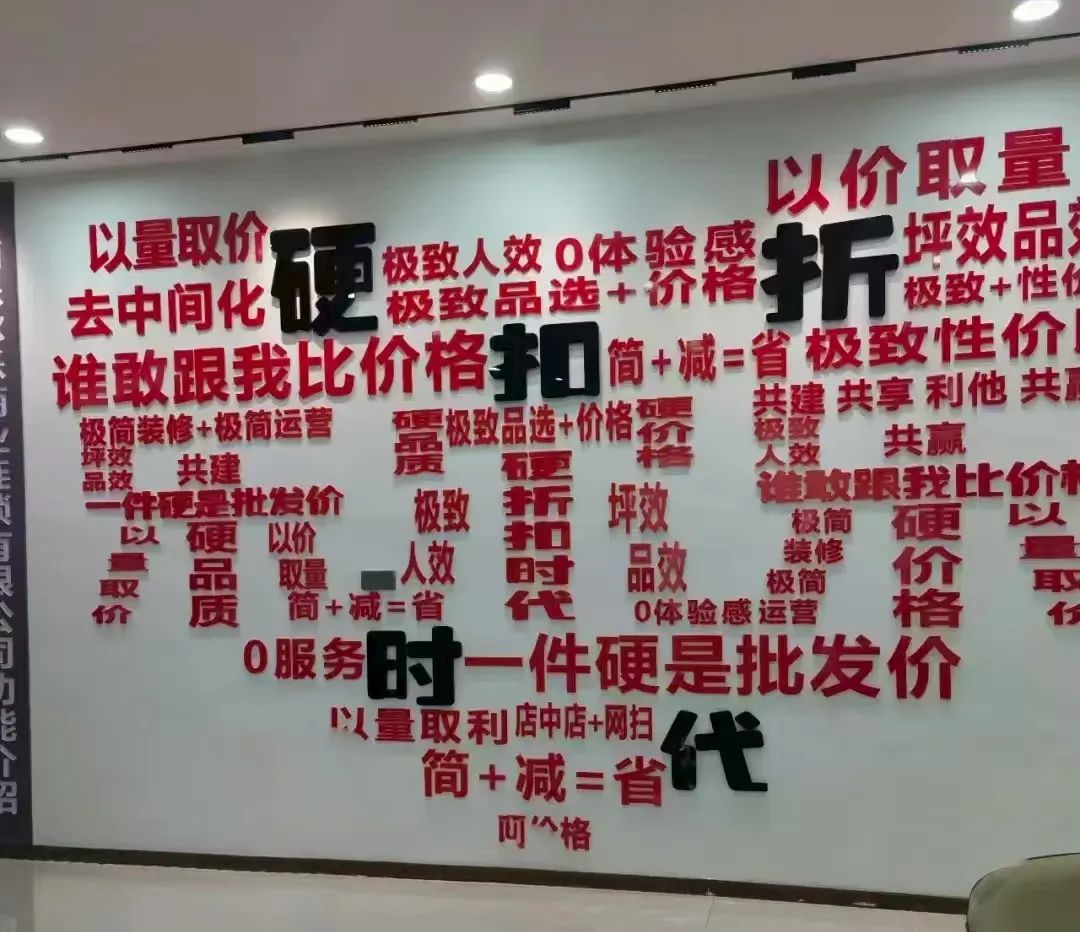 以价取量
以量取价
硬
极致人效
0体验感
折
坪效品效
去中间化
极致品选+价格
极致+性价
谁敢跟我比价格
扣
简+减=省
极致性价
共建 共享 利他 共赢
极简装修+极简运营
硬品质
极致品选+价格
硬价格
极致人效
共赢
坪效品效
共建
硬折扣时代
谁敢跟我比价格
一件硬是批发价
极致
人效
坪效
品效
极简
装修
极简
硬价格
以量取价
以量取价
硬品质
以价
取量
简+减=省
0体验感运营
0服务
时
一件硬是批发价
以量取利
店中店+网扫
代
简+减=省
价格
业连锁有限公司功能介绍